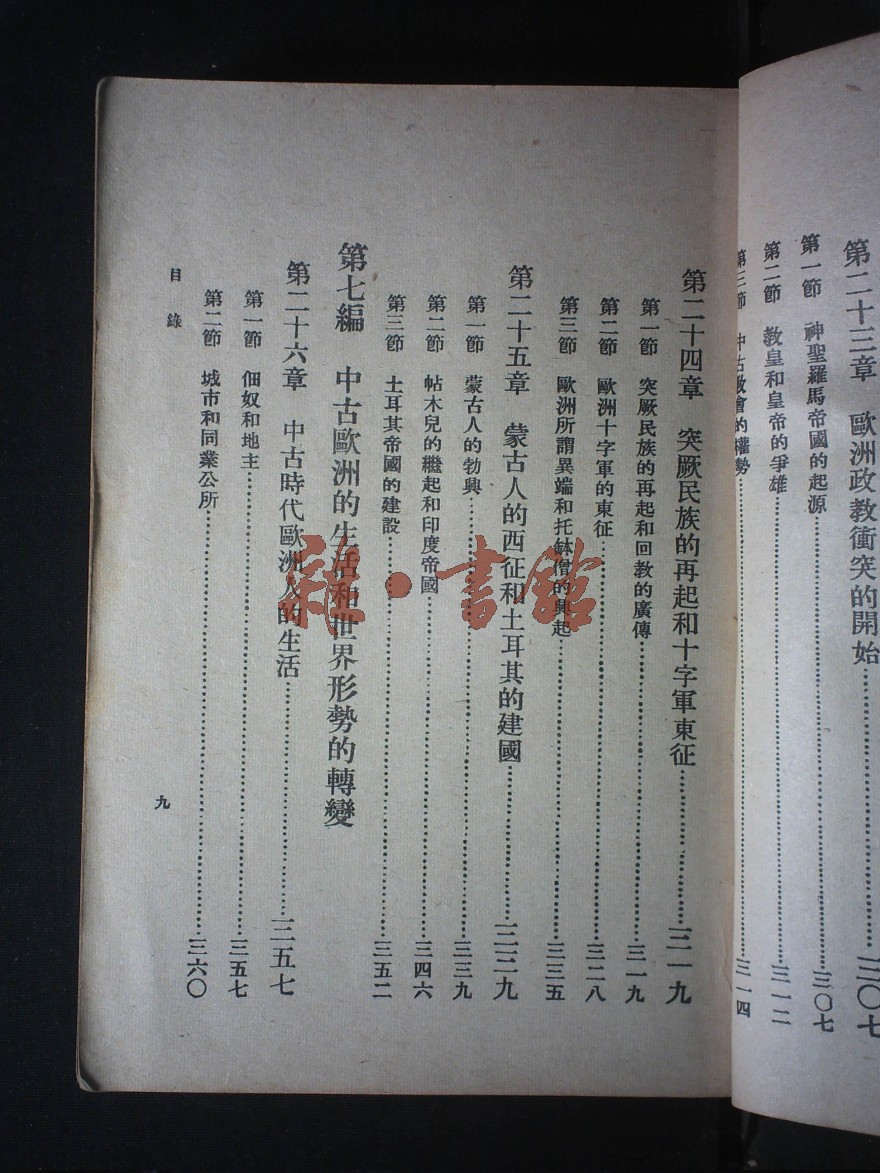 第二十三章　歐洲政教衝突的開始……三〇七
第一節　神聖羅馬帝國的起源……三〇七
第二節　教皇和皇帝的爭雄……三一二
第三節　中古教會的權勢……三一四
第二十四章　突厥民族的再起和十字軍東征……三一九
第一節　突厥民族的再起和回教的廣傳……三一九
第二節　歐洲十字軍的東征……三二八
第三節　歐洲所謂異端和托鉢僧的興起……三三五
第二十五章　蒙古人的西征和土耳其的建國……三三九
第一節　蒙古人的勃興……三三九
第二節　帖木兒的繼起和印度帝國……三四六
第三節　土耳其帝國的建設……三五二
第七編　中古歐洲的生活和世界形勢的轉變
第二十六章　中古時代歐洲人的生活……三五七
第一節　佃奴和地主……三五七
第二節　城市和同業公所……三六〇
目錄
九
雜·書館